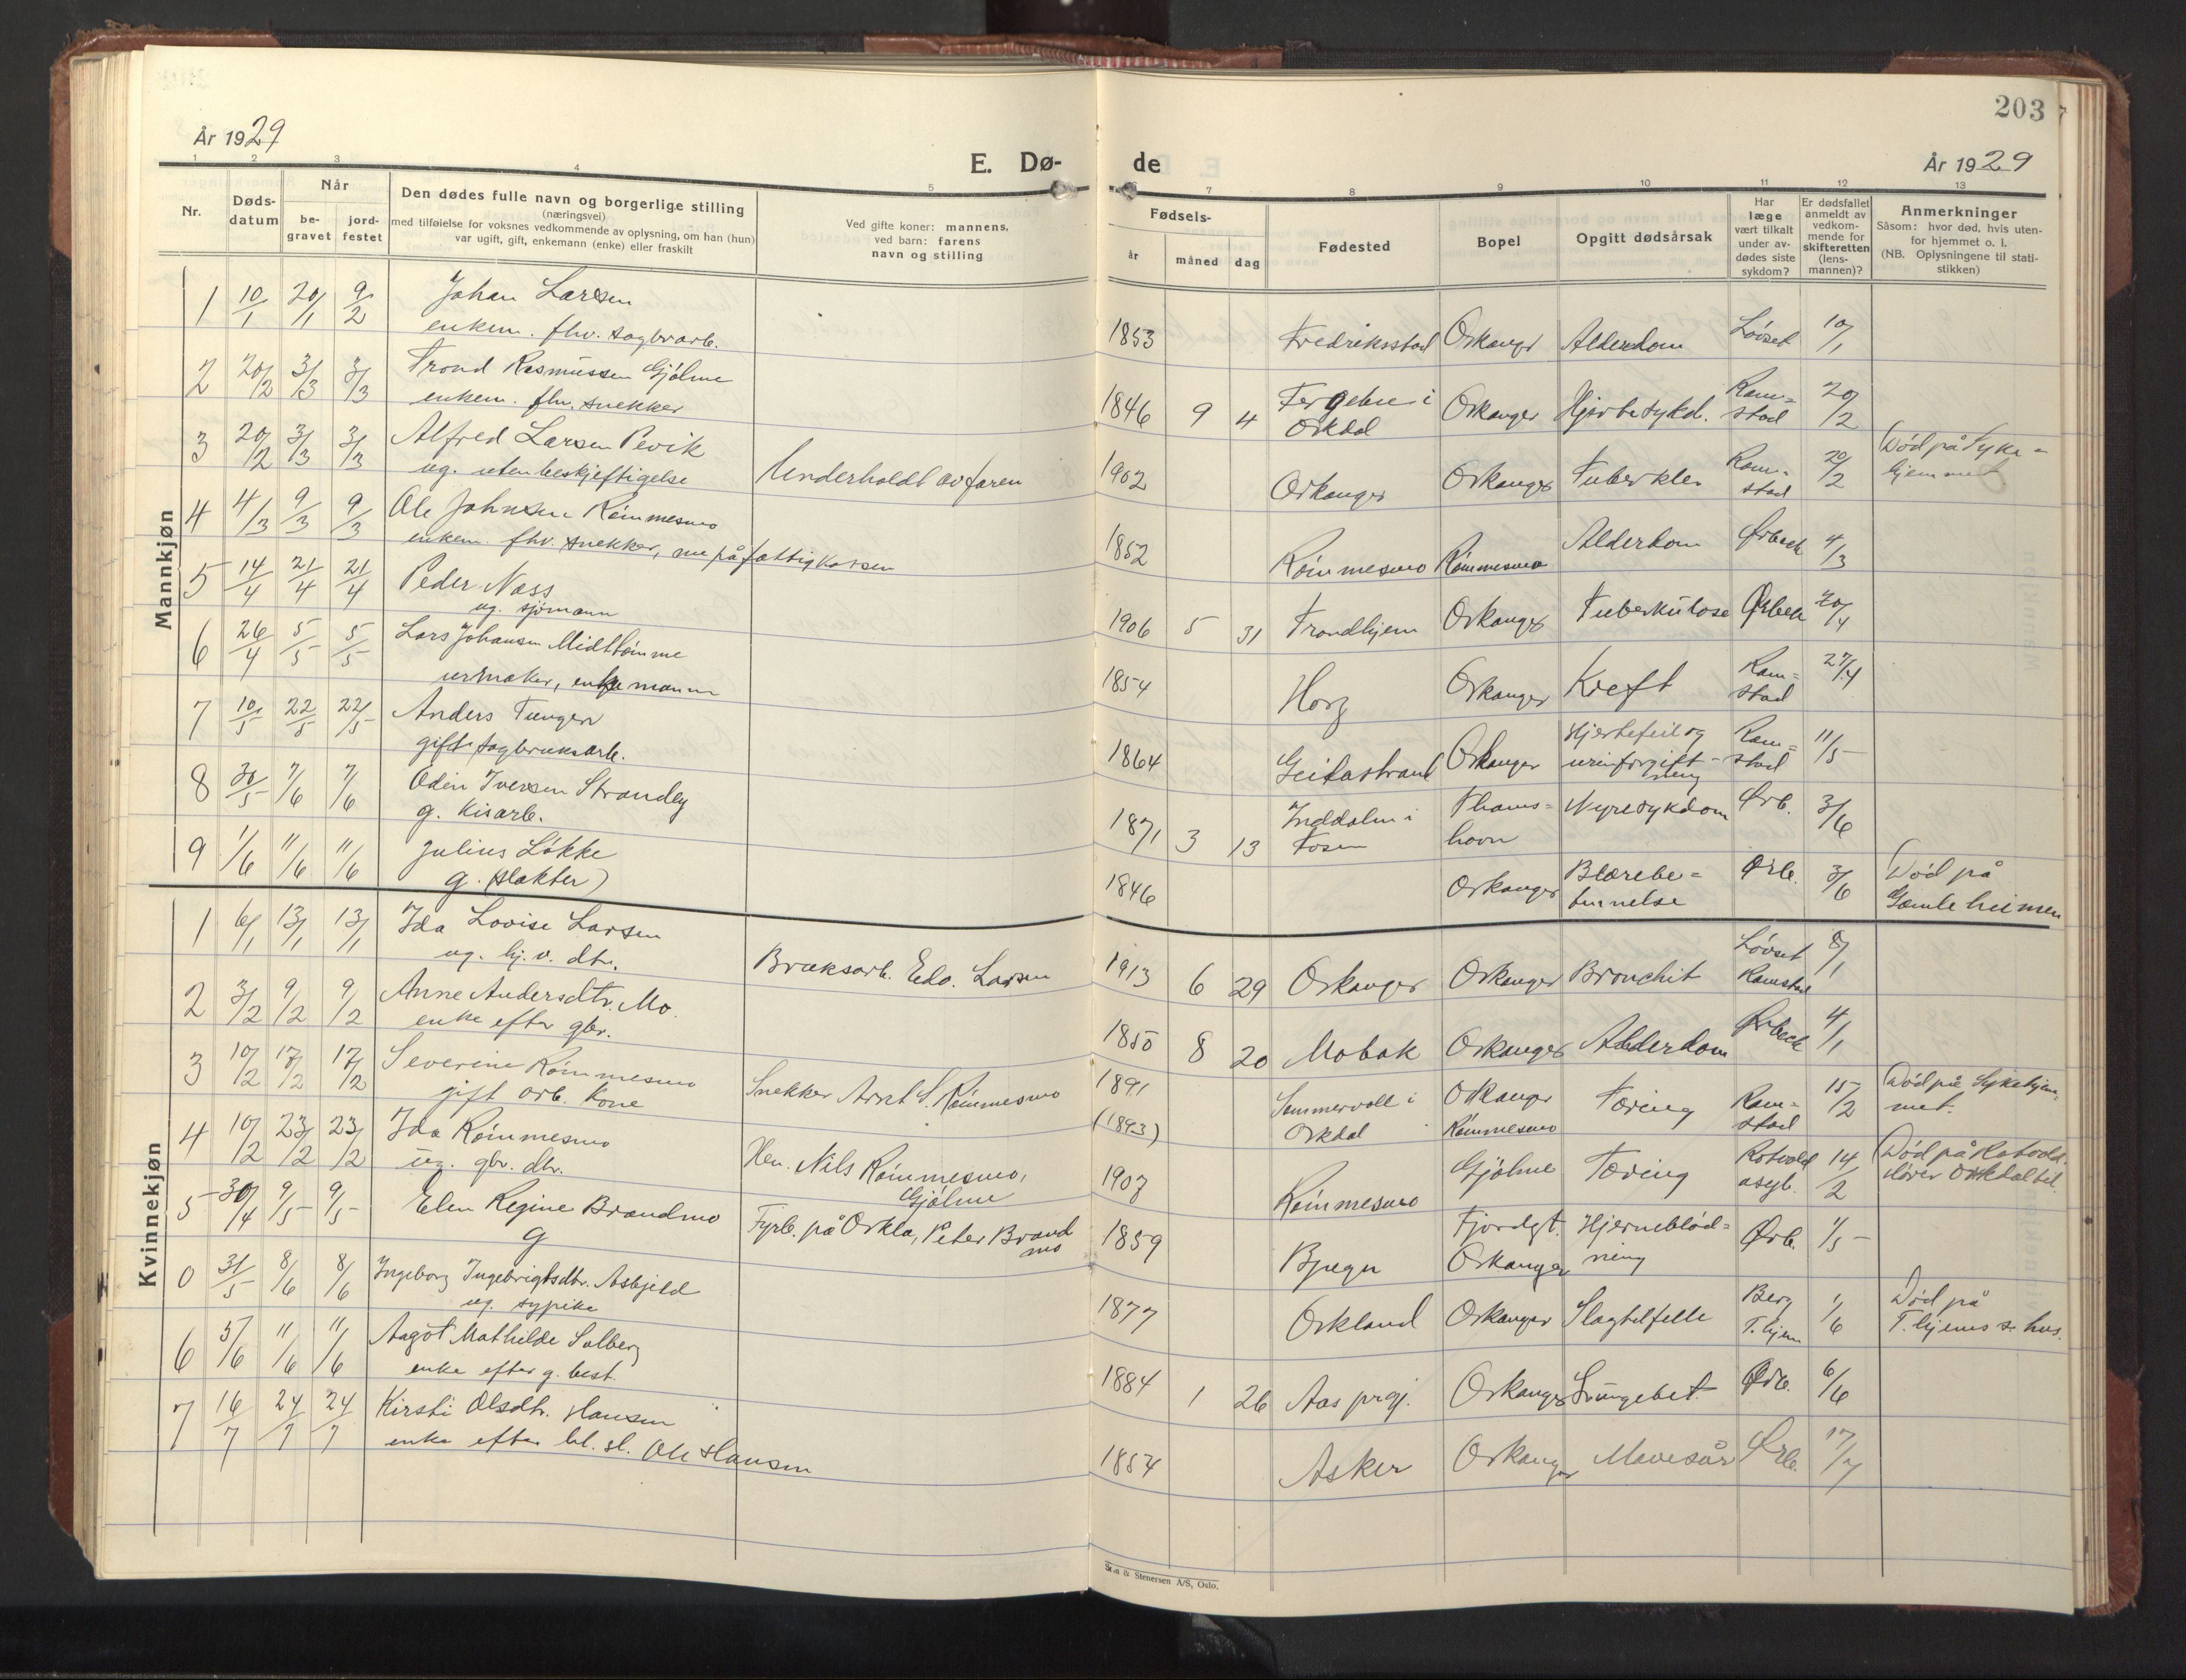 203
År 1929
E. Dø-
de
År 1929
1 2 3 4 5
6 7 8 9 10 11 12 13
Nr.
Døds-
datum
Når
be-
gravet
jord-
festet
Den dødes fulle navn og borgerlige stilling
(næringsvei)
med tilføielse for voksnes vedkommende av oplysning, om han (hun)
var ugift, gift, enkemann (enke) eller fraskilt
Ved gifte koner: mannens,
ved barn: farens
navn og stilling
Fødsels-
år
måned
dag
Fødested
Bopel
Opgitt dødsårsak
Har
læge
vært tilkalt
under av-
dødes siste
sykdom?
Er dødsfallet
anmeldt av
vedkom-
mende for
skifteretten
(lens-
mannen)?
Anmerkninger
Såsom: hvor død, hvis uten-
for hjemmet o. l.
(NB. Oplysningene til stati-
stikken)
Mannkjøn
1 10/1 20/1 9/2 Johan Larsen
enkem. fhv. sagbrarb.
1853 Fredriksstad Orkanger Alderdom Løvset 10/1
2 20/2 3/3 3/3 Trond Rasmussen Gjølme
enkem. fhv. snekker
1846 9 4 i Orkdal Orkanger Hjertesykd. Ram=
stad 20/2
3 20/2 3/3 3/3 Alfred Larsen Pevik
ug. uten beskjeftigelse Underholdt av faren
1902 Orkanger Orkanger Tuberkler Ram=
stad 20/2 Død på Syke=
hjemmet
4 4/3 9/3 9/3 Ole Johnsen Rømmesmo
enkem. fhv. snekker, nu på fattigkassen
1852 Rømmesmo Rømmesmo Alderdom Ørbeck 4/3
5 14/4 21/4 21/4 Peder Næss
ug. sjømann
1906 5 31 Trondhjem Orkanger Tuberkulose Ørbeck 20/4
6 26/4 5/5 5/5 Lars Johansen Midttømme
urmaker, enkemann
1854 Horg Orkanger Kreft Ram=
stad 27/4
7 10/5 22/5 22/5 Anders Tungen
gift sagbruksarb.
1864 Geitastrand Orkanger Hjertefeil og
urinforgift-
ning Ram=
stad 11/5
8 30/5 7/6 7/6 Odin Iversen Strandly
g. kisarb.
1871 3 13 Inddalen i
Fosen Thams=
havn Nyresykdom Ørb. 3/6
9 1/6 11/6 11/6 Julius Løkke
g. (slakter)
1846 Orkanger Blærebe=
tennelse Ørb. 3/6 Død på
Gamleheimen
Kvinnekjøn
1 6/1 13/1 13/1 Ida Lovise Larsen
ug. hj. v. dtr. Bruksarb. Edv. Larsen
1913 6 29 Orkanger Orkanger Bronchit Løvset
Ramstad 8/1
2 3/2 9/2 9/2 Anne Andersdtr. Mo.
enke efter gbr.
1850 8 20 Mobak Orkanger Alderdom Ørbeck 4/1
3 10/2 17/2 17/2 Severine Rømmesmo
gift arb. kone Snekker Arnt S. Rømmesmo
1891
(1893) Sommervoll i
Orkdal Orkanger
Rømmesmo Tæring Ram=
stad 15/2 Død på Sykehjem
met.
4 10/2 23/2 23/2 Ida Rømmesmo
ug. gbr. dtr. Nils Rømmesmo,
Gjølme
1907 Rømmesmo Gjølme Tæring Rotvold
asyl. 14/2 Død på Rotvold.
Orkdal
5 30/4 9/5 9/5 Elen Regine Brandmo
g Fyrb. på Orkla, Peter Brand
mo
1859 Fjordgt.
Orkanger Hjerneblød=
ning Ørb. 1/5
0 31/5 8/6 8/6 Ingeborg Ingebrigtsdtr. Asbjeld
ug. sypike
1877 Orkland Orkanger Slagtilfelle Berg
T.hjem 1/6 Død på
T.hjems s. hus.
6 5/6 11/6 11/6 Aagot Mathilde Solberg
enke efter g. best.
1884 1 26 Aas prgj. Orkanger Lungebet Ørb. 6/6
7 16/7 24/7 24/7 Kirsti Olsdtr. Hansen
enke efter bl. sl. Ole Hansen
1854 Asker Orkanger Mavesår Ørb. 17/7
Sem & Stenersen A/S, Oslo.